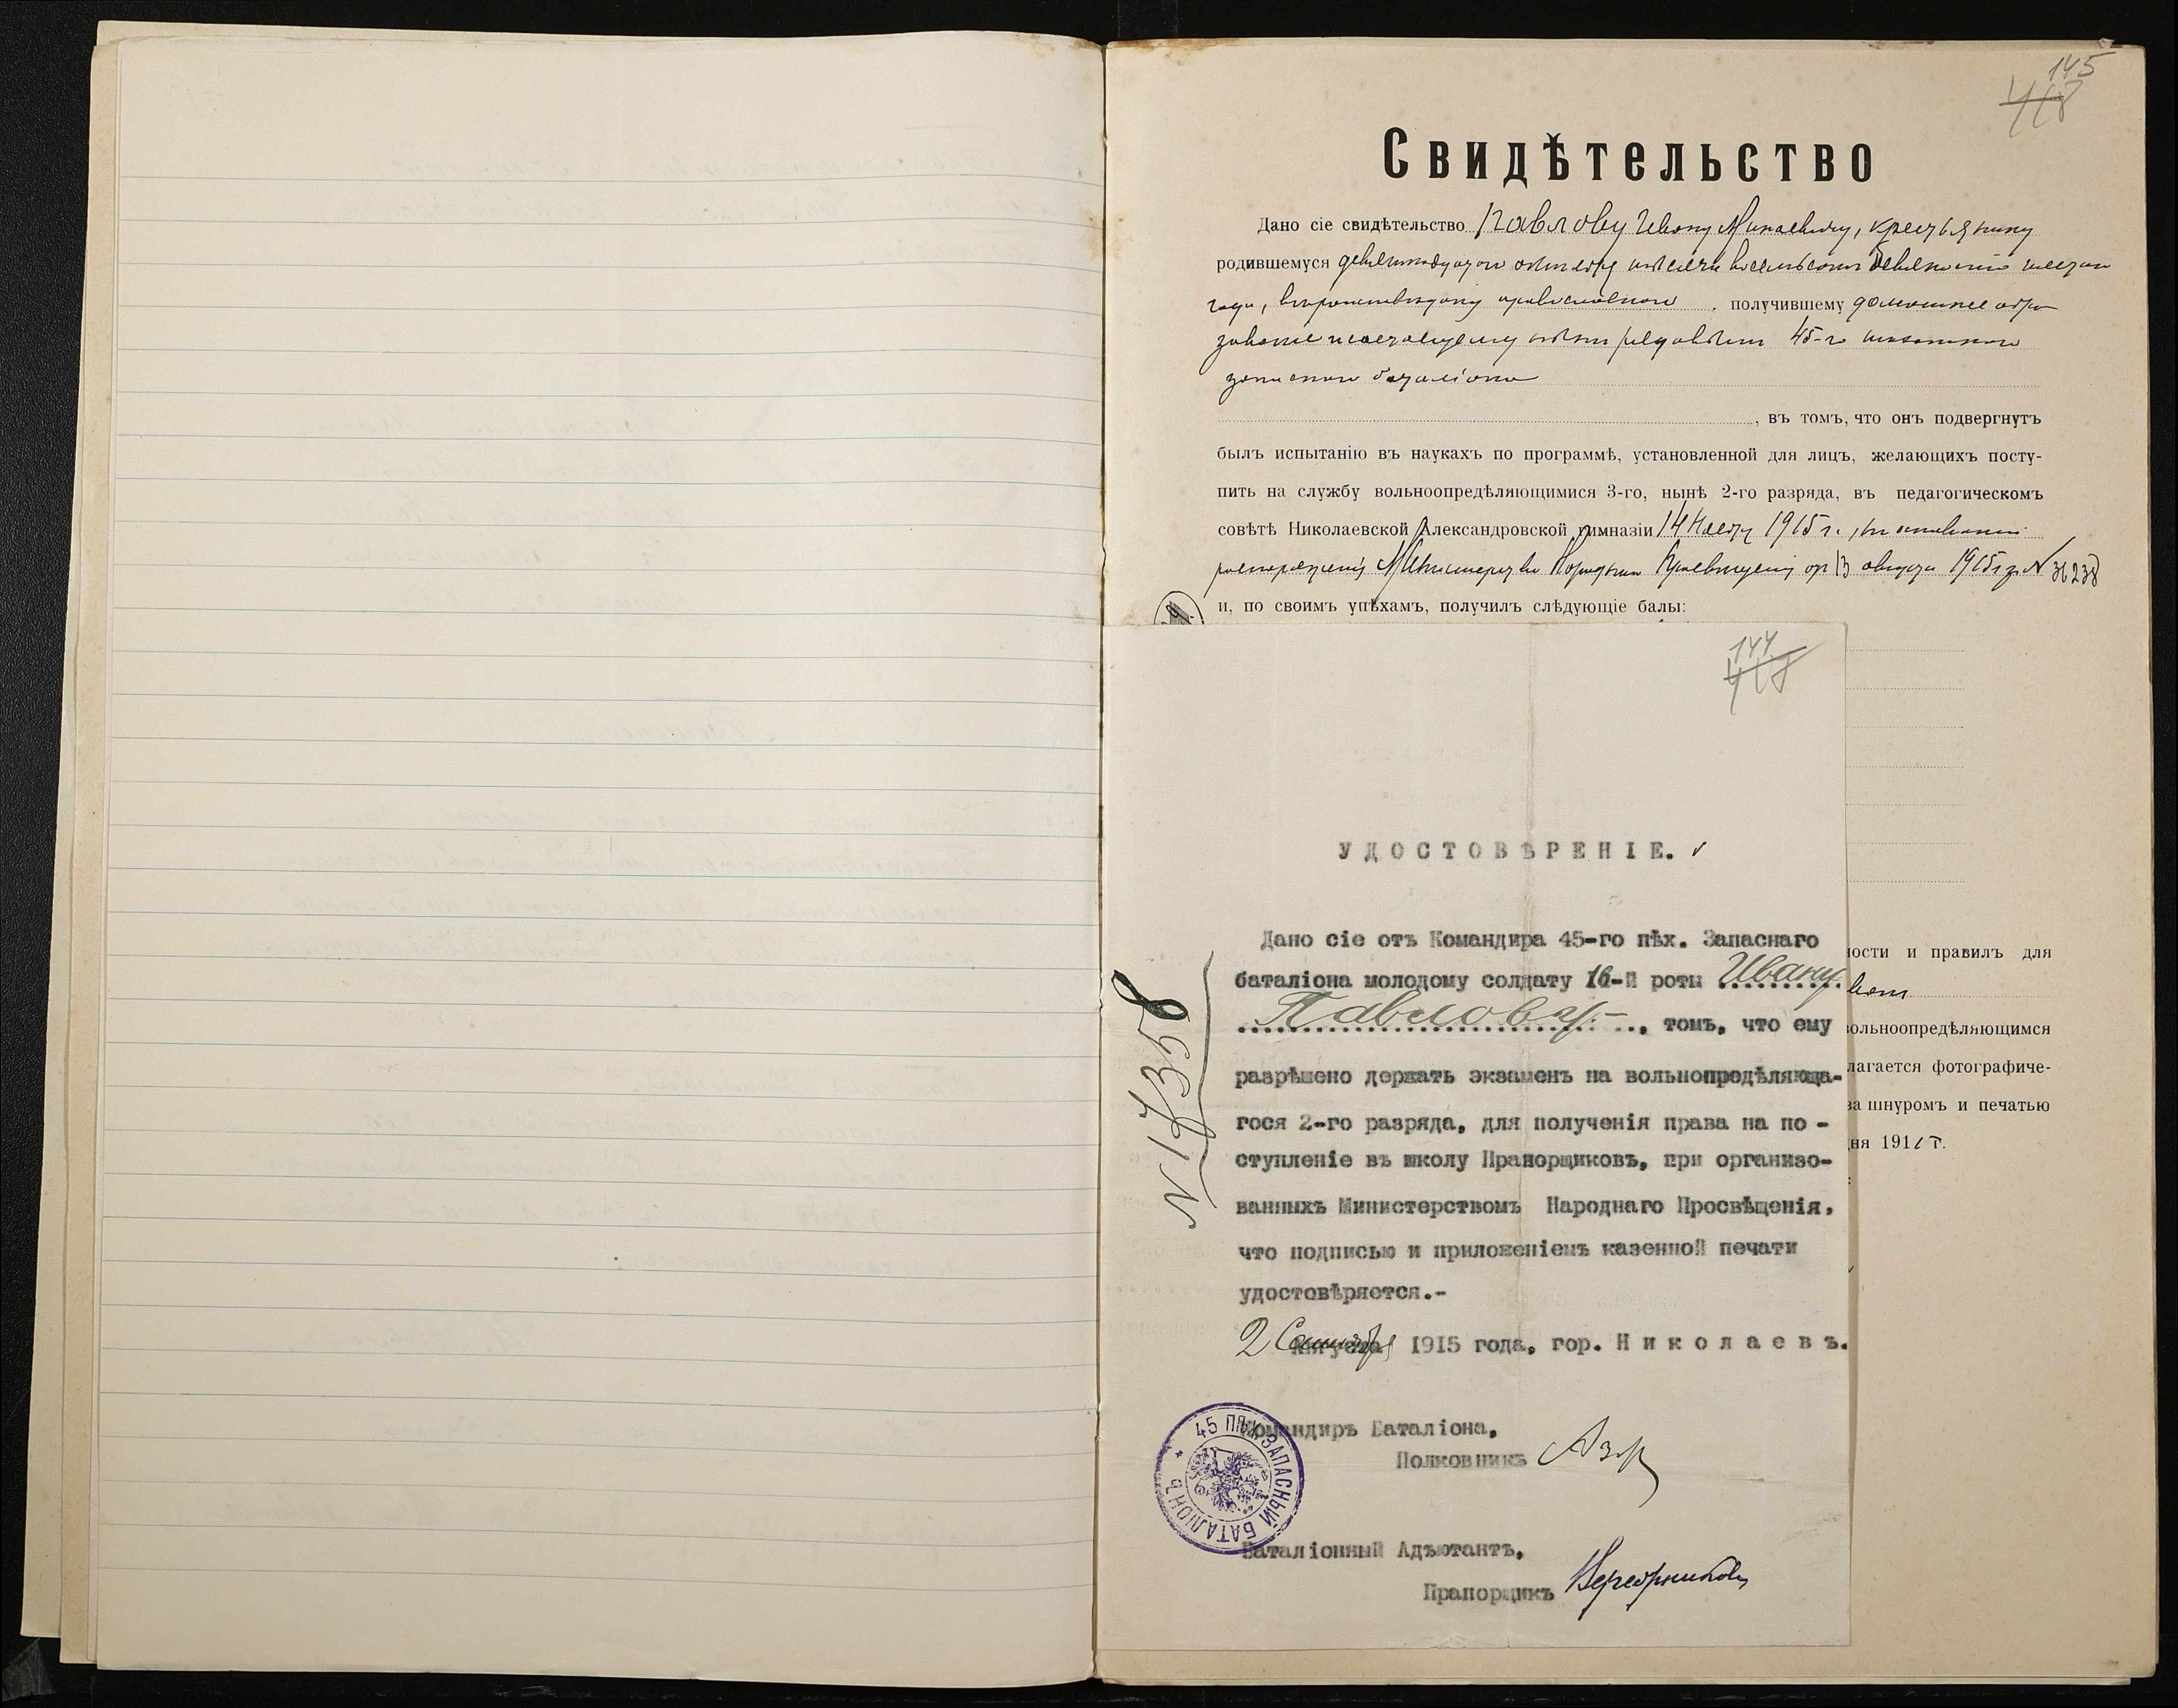 145
418
Свидѣтельство
Дано сіе свидѣтельство Павлову Ивану Минаевичу, крестьянину
родившемуся девятнадцатого октября тысяча восемьсотъ девяносто шестого
года, вѣроисповѣданія православного, получившему домашнее обра
зованіе и состоящему рядовымъ 45-го пѣхотного
запасного баталіона
, въ томъ, что онъ подвергнутъ
былъ испытанію въ наукахъ по программѣ, установленной для лицъ, желающихъ посту-
пить на службу вольноопредѣляющимися 3-го, нынѣ 2-го разряда, въ педагогическомъ
совѣтѣ Николаевской Александровской гимназіи 14 1915 г., на основаніи
распоряженія Министерства Народнаго Просвѣщенія от 13 августа 1915 г. за № 36238
и, по своимъ успѣхамъ, получилъ слѣдующіе балы:
144
418
УДОСТОВѢРЕНІЕ.
Дано сіе отъ Командира 45-го пѣх. Запаснаго
баталіона молодому солдату 16-й роты Ивану
Павлову, томъ, что ему
разрѣшено держать экзаменъ на вольнопредѣляюща-
гося 2-го разряда, для полученія права на по -
ступленіе въ школу Прапорщиковъ, при организо-
ванныхъ Министерствомъ Народнаго Просвѣщенія,
что подписью и приложеніемъ казенной печати
удостовѣряется.-
2 Сентября 1915 года, гор. Николаевъ.
Командиръ Баталіона,
Полковникъ
Баталіонный Адъютантъ,
Прапорщикъ
45 ПѢХ. ЗАПАСНЫЙ БАТАЛІОНЪ
№ 17358
ности и правилъ для
вольноопредѣляющимся
лагается фотографиче-
за шнуромъ и печатью
дня 191 г.